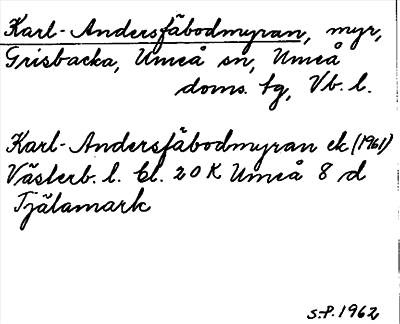 Karl-Andersfäbodmyran, myr,
Grisbacka, Umeå sn, Umeå
doms. tg, Vb. l.
Karl-Andersfäbodmyran ek (1961)
Västerb. l. bl. 20 K Umeå 8 d
Tjälamark
S.P. 1962